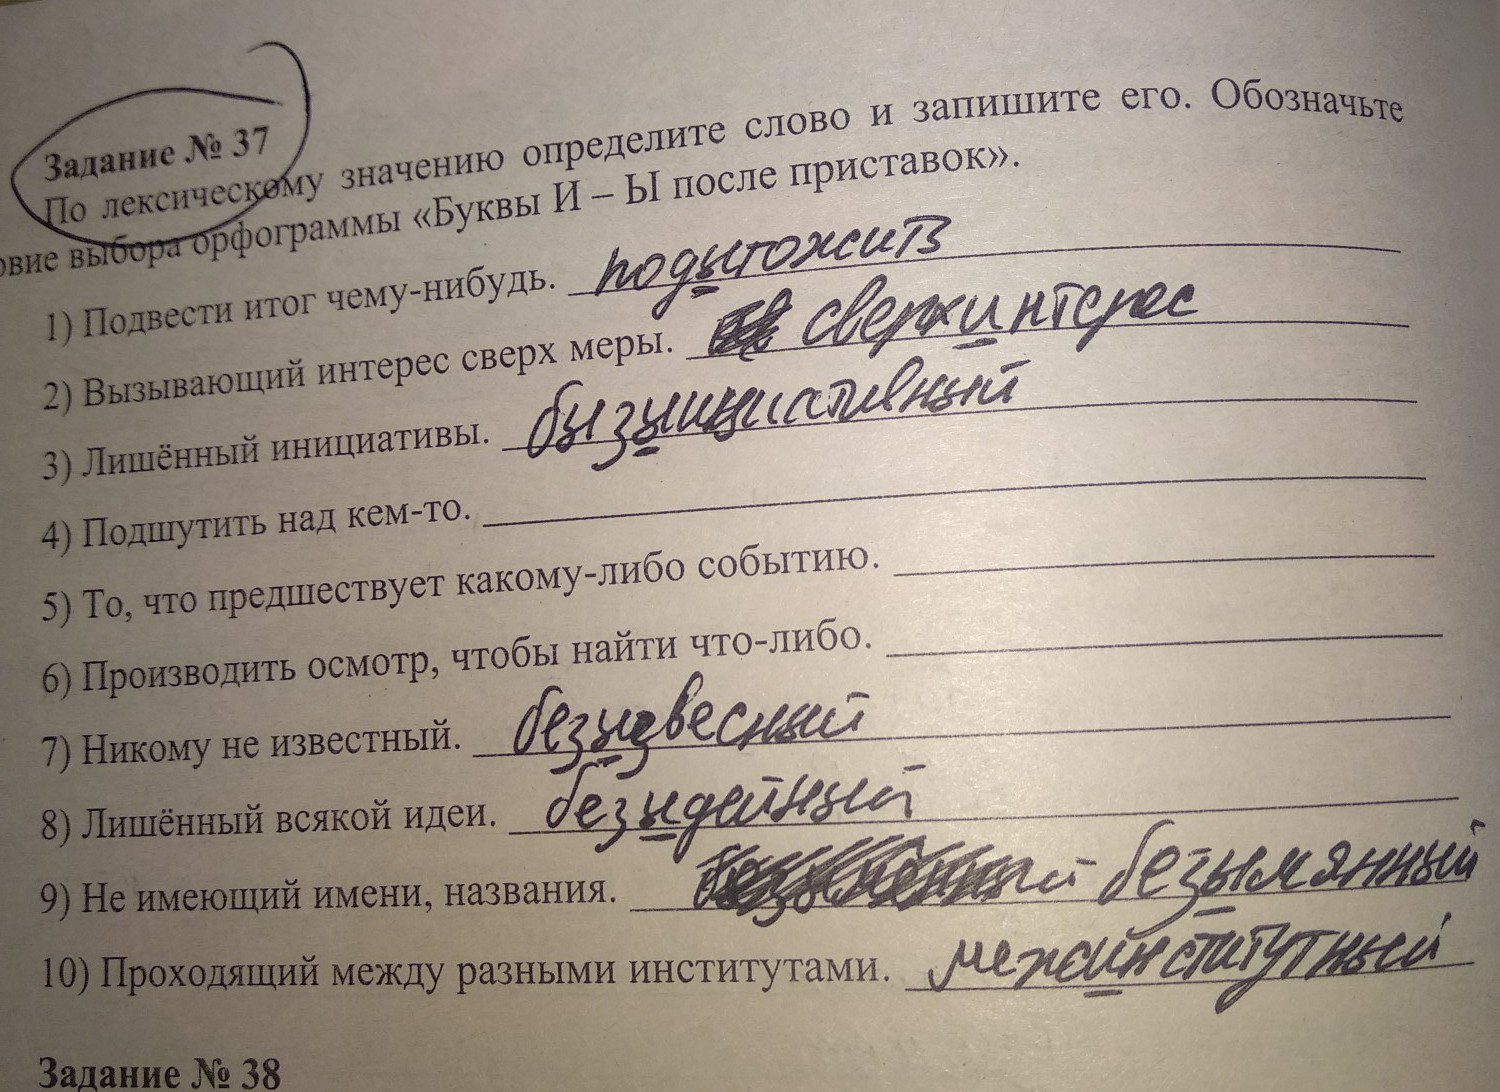 Задание № 37
По лексическому значению определите слово и запишите его. Обозначьте
овие выбора орфограммы «Буквы И – Ы после приставок».
1) Подвести итог чему-нибудь. подытожить
2) Вызывающий интерес сверх меры. сверхинтерес
3) Лишённый инициативы. безинициативный
4) Подшутить над кем-то.
5) То, что предшествует какому-либо событию.
6) Производить осмотр, чтобы найти что-либо.
7) Никому не известный. безизвесный
8) Лишённый всякой идеи. безидейный
9) Не имеющий имени, названия. безымянный
10) Проходящий между разными институтами. межинститутный
Задание № 38